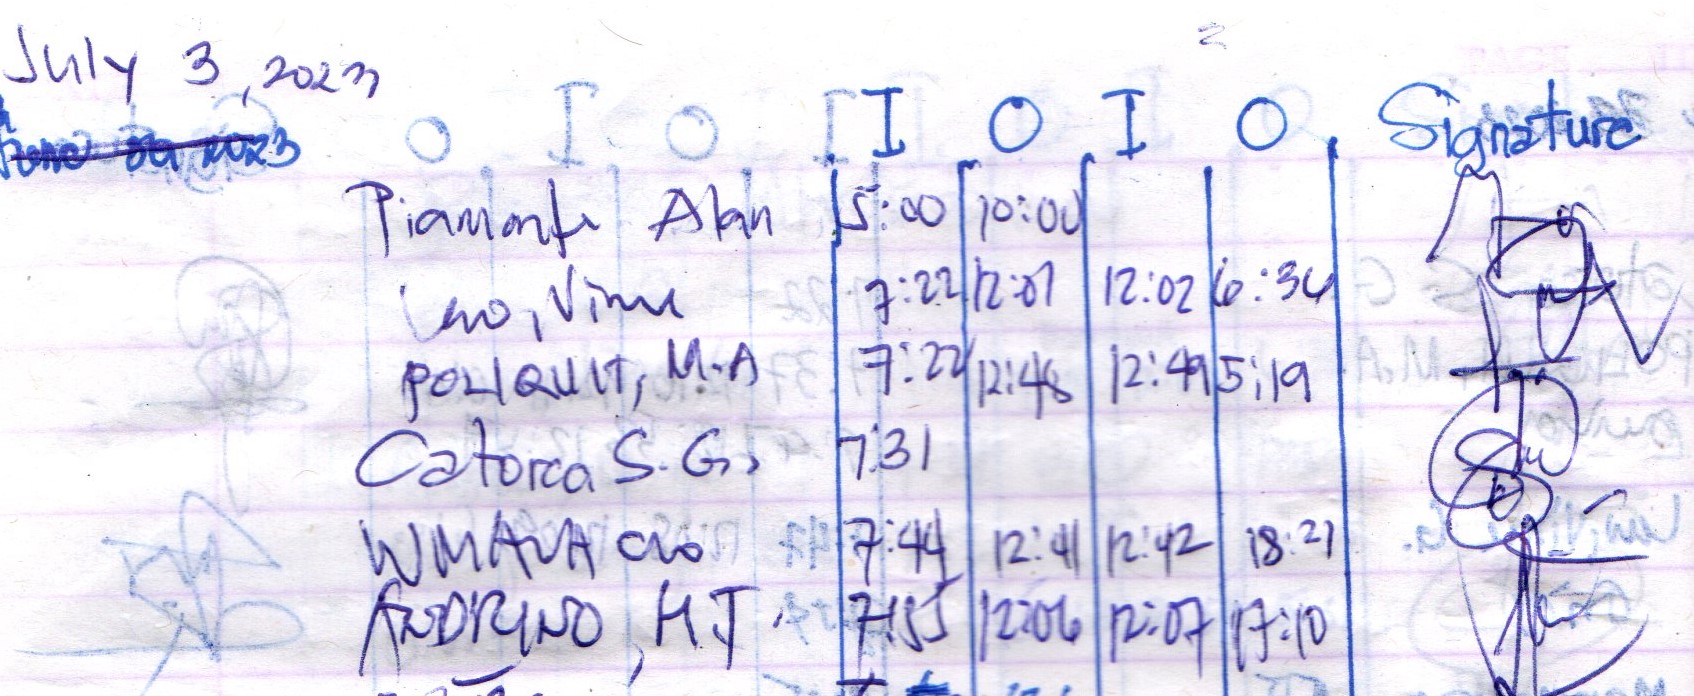 July 3, 2023
I O I O Signature
Piamonte Alan 5:00 10:00
Leo, Vime 7:22 12:01 12:02 6:34
POLIQUIT, M.A 7:22 12:48 12:49 5:19
Catorca S.G. 7:31
7:44 12:41 12:42 18:21
ANDRINO, H.J. 7:55 12:06 12:07 17:10